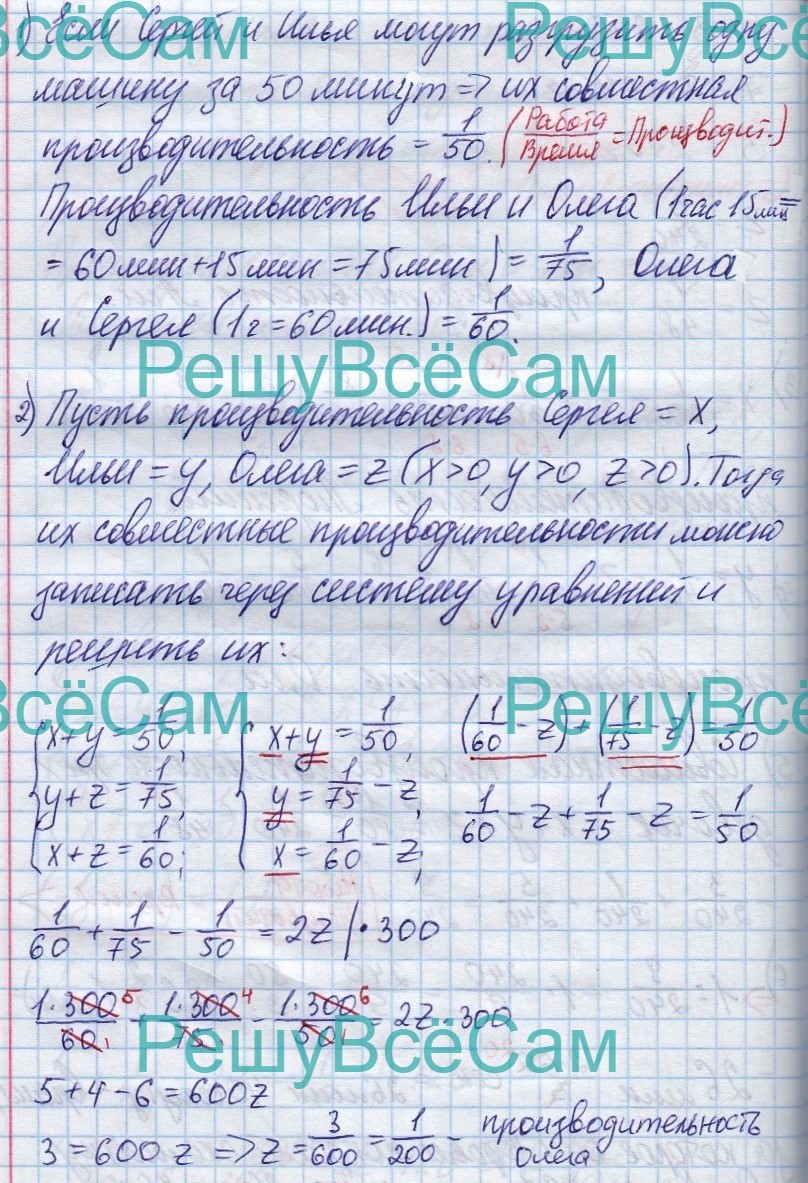 1) Если Сергей и Илья могут разгрузить одну
машину за 50 минут => их совместная
производительность = 1/50. (Работа/Время = Производит.)
Производительность Ильи и Олега (1 час 15 мин =
= 60 мин + 15 мин = 75 мин) = 1/75, Олега
и Сергея (1 ч = 60 мин.) = 1/60.
РешуВсёСам
2) Пусть производительность Сергея = x,
Ильи = y, Олега = z (x>0, y>0, z>0). Тогда
их совместные производительности можно
записать через систему уравнений и
решить их:
{x+y = 1/50; {x+y = 1/50; (1/60 - z) + (1/75 - z) = 1/50
y+z = 1/75; y = 1/75 - z; 1/60 - z + 1/75 - z = 1/50
x+z = 1/60; x = 1/60 - z;
1/60 + 1/75 - 1/50 = 2z |·300
1·300⁵/60₁ + 1·300⁴/75₁ - 1·300⁶/50₁ = 2z·300
РешуВсёСам
5+4-6 = 600z
3 = 600z => z = 3/600 = 1/200 - производительность
Олега
РешуВсёСам
РешуВсёСам
ВсёСам
РешуВсёСам